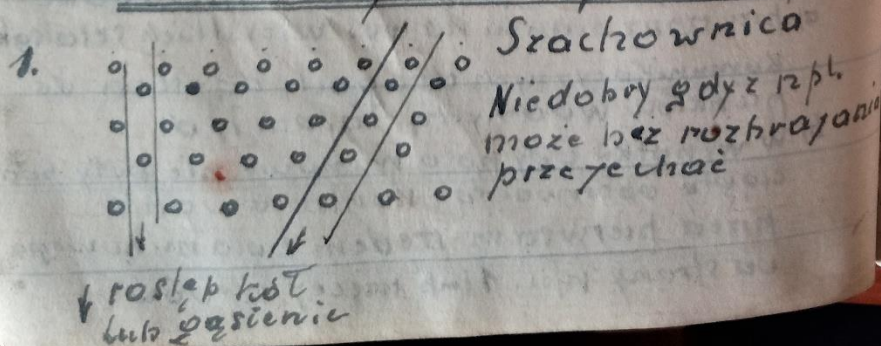 1.
Szachownica
Niedobry gdyż npl.
może bez rozbrajania
przejechać
rostęp kół
lub gąsienic